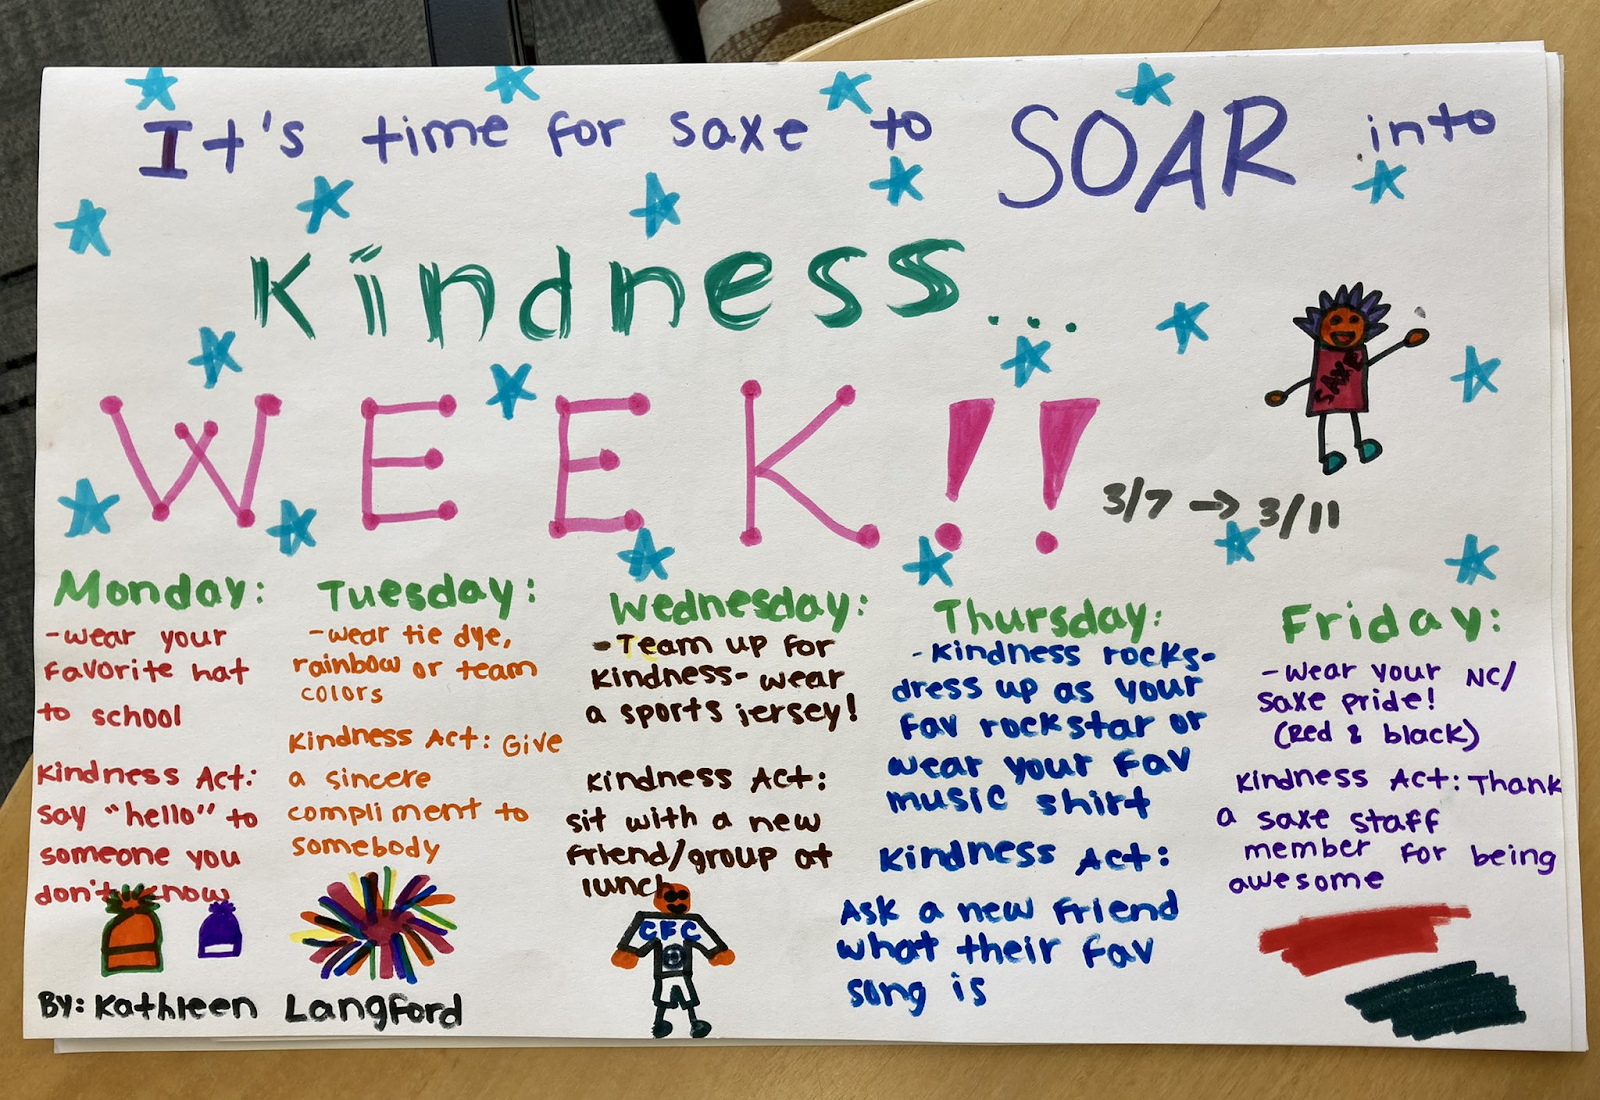 It's time for saxe to SOAR into
Kindness...
WEEK!!
SAXE
3/7 → 3/11
Monday:
-wear your
favorite hat
to school
Kindness Act:
say "hello" to
someone you
don't know
Tuesday:
-wear tie dye,
rainbow or team
colors
Kindness Act: Give
a sincere
compliment to
somebody
Wednesday:
-Team up for
Kindness- wear
a sports jersey!
Kindness Act:
sit with a new
friend/group at
lunch
CFC
Thursday:
-Kindness rocks-
dress up as your
fav rockstar or
wear your fav
music shirt
Kindness Act:
Ask a new friend
what their fav
song is
Friday:
-Wear your NC/
saxe pride!
(Red & black)
Kindness Act: Thank
a saxe staff
member for being
awesome
By: Kathleen Langford